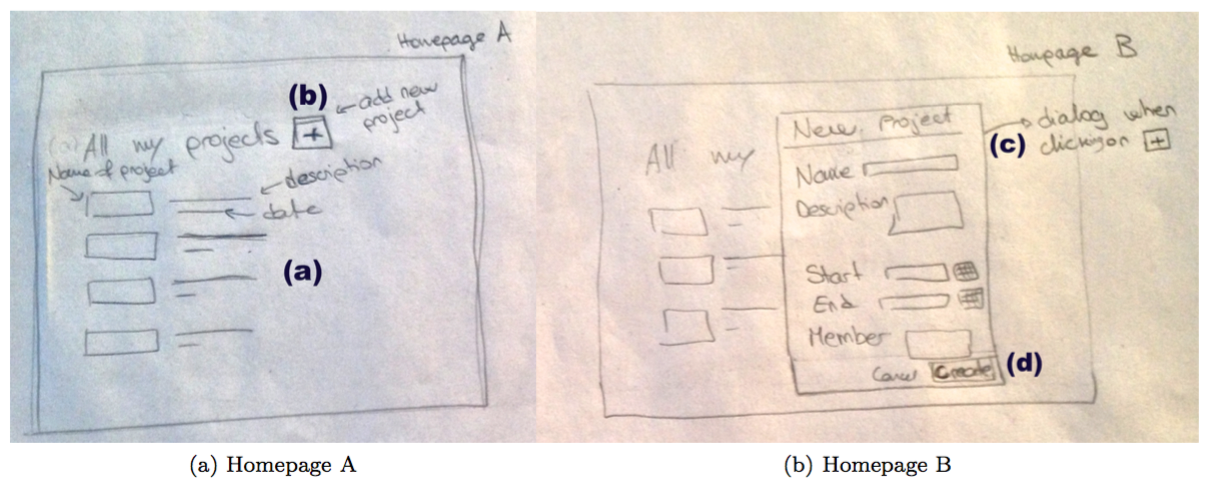 Homepage A
(b)
add new
project
(a) All my projects +
Name of project
description
date
(a)
(a) Homepage A
Hompage B
New Project
dialog when
clicking on +
(c)
All my
Name
Description
Start
End
Member
Cancel Create
(d)
(b) Homepage B